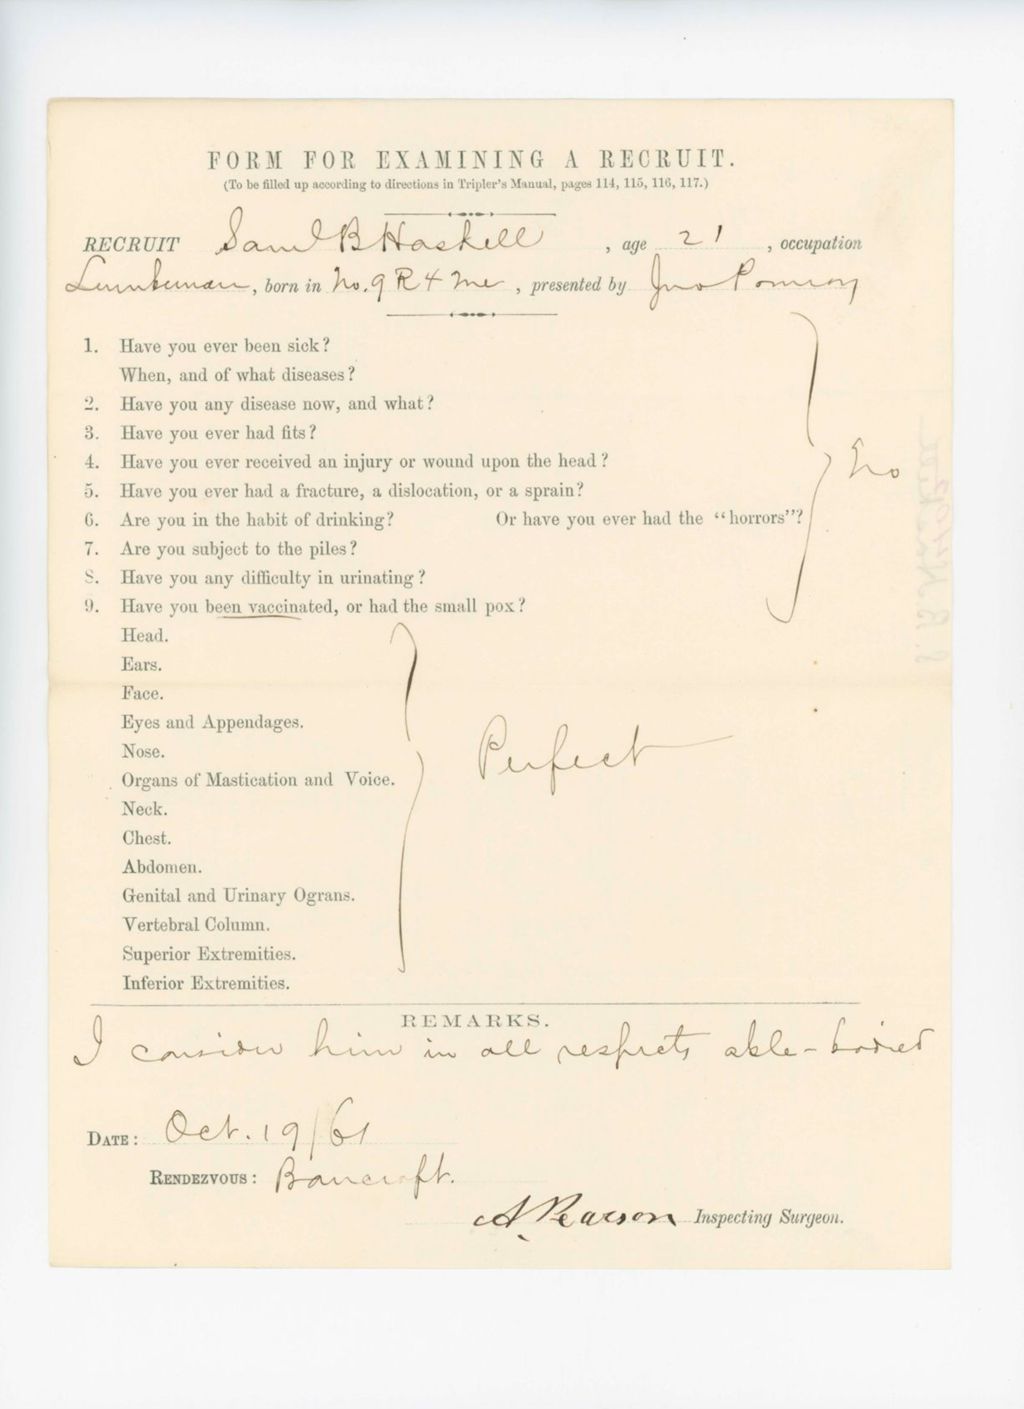 FORM FOR EXAMINING A RECRUIT.
(To be filled up according to directions in Tripler's Manual, pages 114, 115, 116, 117.)
RECRUIT Saml B Haskell, age 21, occupation
Lumberman, born in No. 9 R 4 Me, presented by Jno Pomroy
1. Have you ever been sick?
When, and of what diseases?
2. Have you any disease now, and what?
3. Have you ever had fits?
4. Have you ever received an injury or wound upon the head?
No
5. Have you ever had a fracture, a dislocation, or a sprain?
6. Are you in the habit of drinking? Or have you ever had the "horrors"?
7. Are you subject to the piles?
8. Have you any difficulty in urinating?
9. Have you been vaccinated, or had the small pox?
Head.
Ears.
Face.
Eyes and Appendages.
Nose.
Perfect
Organs of Mastication and Voice.
Neck.
Chest.
Abdomen.
Genital and Urinary Ograns.
Vertebral Column.
Superior Extremities.
Inferior Extremities.
REMARKS.
I consider him in all respects able-bodied
DATE: Oct. 19/61
RENDEZVOUS: Bancroft.
A Pearson Inspecting Surgeon.